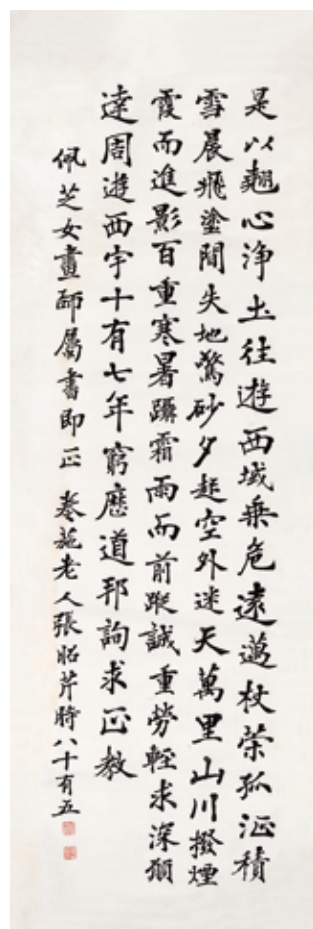 是以翹心淨土往遊西域乗危遠邁杖策孤征積
雪晨飛塗間失地驚砂夕起空外迷天萬里山川撥煙
霞而進影百重寒暑躡霜雨而前蹤誠重勞輕求深願
達周遊西宇十有七年窮歷道邦詢求正教
佩芝女畫師屬書即正 卷葹老人張昭芹時八十有五